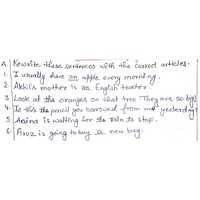 A. Rewrite these sentences with the correct articles.
1. I usually have an apple every morning.
2. Akhil's mother is an English teacher.
3. Look at the oranges on that tree. They are so big!
4. Is this the pencil you borrowed from me yesterday?
5. Aaina is waiting for the rain to stop.
6. Firoz is going to buy a new bag.